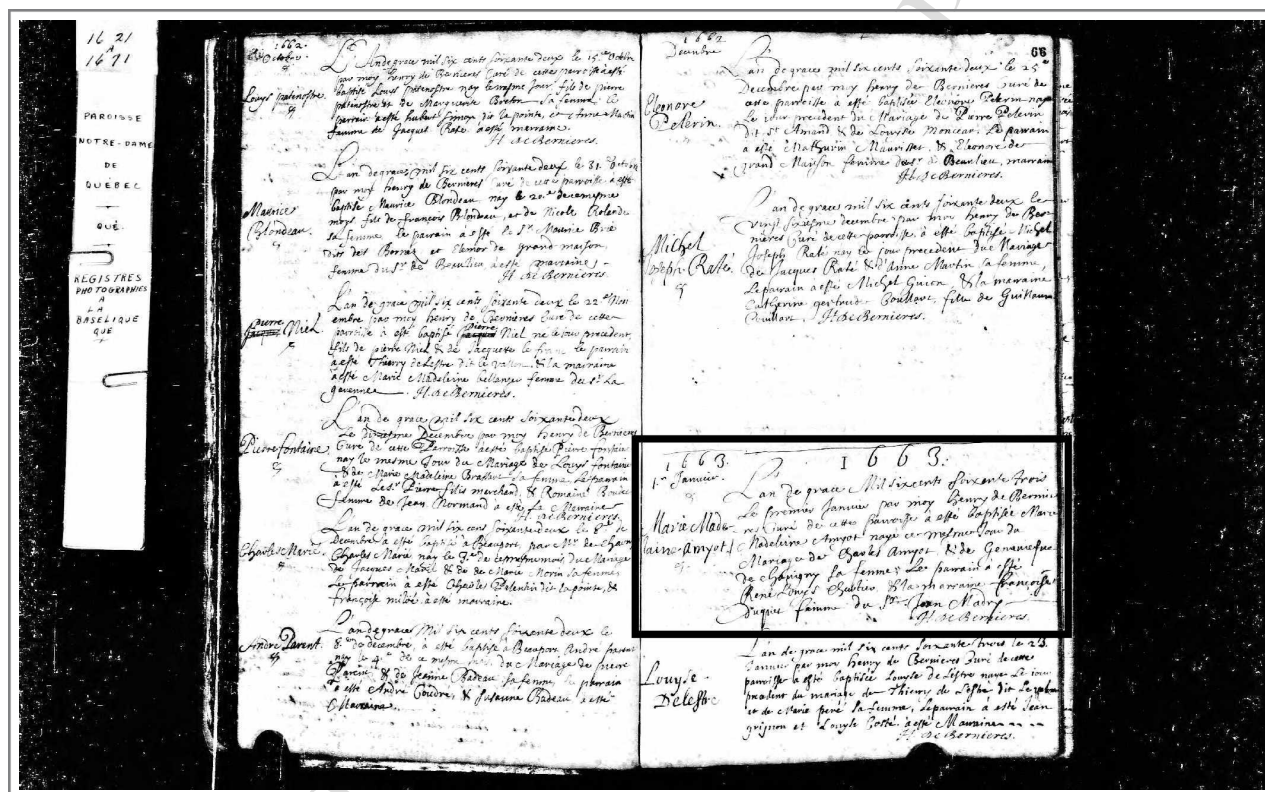 16 21
A
1671
PAROISSE
NOTRE-DAME
DE
QUEBEC
QUÉ.
REGISTRES
PHOTOGRAPHIES
A
LA
BASELIQUE
QUE
1662.
Octobre
Louys patenostre
L'An de grace mil six cents soixante deux le 15.me Octobre
par moy henry de Bernieres Curé de cette parroisse a esté
baptisé Louys patenostre nay le mesme Jour, fils de pierre
patenostre et de Marguerite Breton sa femme le
parrain a esté hubert Simon dit la pointe, et Anne Martin
famme de Jacques Raté a esté marraine.
H. de Bernieres.
Maurice
Blondeau.
L'an de grace mil six cents soixante deux le 31. Octobre
par moy henry de Bernieres Curé de cette parroisse a esté
baptisé Maurice Blondeau nay le 20.e du mesme
moys fils de françois Blondeau, et de Nicole Rolende
sa femme. le parrain a esté le Sr. Maurice
et Elenor de Grand maison,
femme du Sr. de Beaulieu a esté marraine.
H. de Bernieres.
pierre
Jacques Niel
L'an de grace mil six cents soixante deux le 22.e Nov
embre par moy henry de Bernieres Curé de cette
parroisse a esté baptisé pierre Jacques Niel né le iour precedent,
fils de pierre Niel & de Jacquette le franc le parrain
a esté Thierry de Lestre dit le vallon, & la marraine
a esté Marie Madeleine bellanger femme du Sr. La
H. de Bernieres.
Pierre fontaine
L'an de grace mil six cents soixante deux
Le Decembre par moy henry de Bernieres
Curé de cette Parroisse a esté baptisé Pierre fontaine
nay le mesme Jour du Mariage de Louys fontaine
& de Marie Madeleine Brassart sa femme. Le parrain
a esté Le Sr. Pierre filis merchand, & Romaine
famme de Jean Normand a esté La Marraine
H. de Bernieres.
Charles Marié
L'an de grace mil six cens soixante deux le 8.e de
Decembre a esté baptisé a Beauport par Mr. de
Charles Marié nay le 7.e de ce mesme mois, du Mariage
de Jacques Marié & de Marie Morin sa femme,
Le parrain a esté Charles dit la pointe, &
françoise a esté marraine.
André Parent.
L'an de grace Mil six cents soixante deux le
8.e de decembre, a esté baptisé a Beauport André parent
nay le 4.e de ce mesme mois, du Mariage de pierre
Parent, & de Jeanne Badeau sa femme, le parrain
a esté André Coudre, & Susanne Badeau a esté
Marraine.
1662
Decembre
68
Eleonore
Pelerin.
L'an de grace mil six cents soixante deux le 25.e
Decembre par moy henry de Bernieres Curé de
cette parroisse a esté baptisée Eleonore Pelerin naye
Le iour precedent du Mariage de Pierre Pelerin
dit St. Amand & de Louyse Monceau, Le parrain
a esté Mathurin & Eleonore de
grand Maison femme du Sr. de Beaulieu, marraine
H. de Bernieres.
Michel
Joseph Raté.
L'an de grace mil six cents soixante deux le
vingt sixiesme decembre par moy henry de Ber-
nieres Curé de cette parroisse, a esté baptisé Michel
Joseph Raté nay le iour precedent du Mariage
de Jacques Raté & d'Anne Martin sa femme,
Le parrain a esté Michel Guion, & la marraine
Catherine gertrude Couillart, fille de Guillaume
Couillart. H. de Bernieres.
1663. 1663.
1.er Janvier.
Marie Made
laine Amyot
L'an de grace Mil six cents soixante trois
Le premier Janvier par moy henry de Bernie
res Curé de cette parroisse a esté baptisée Marie
Madeleine Amyot naye ce mesme Jour du
Mariage de Charles Amyot, & de Genevieve
de chavigny sa femme; Le parrain a esté
René Louys Chartier & la marraine françoise
Duquet famme du Sr. Jean Madry
H. de Bernieres.
Louyse
Delestre
L'an de grace mil six cents soixante trois le 23.
Janvier par moy henry de Bernieres Curé de cette
parroisse a esté baptisée Louyse de Lestre naye Le iour
precedent du mariage de Thierry de Lestre dit Le
et de Marie peré sa femme, Le parrain a esté Jean
grignon et Louyse Costé a esté Marraine
H. de Bernieres.